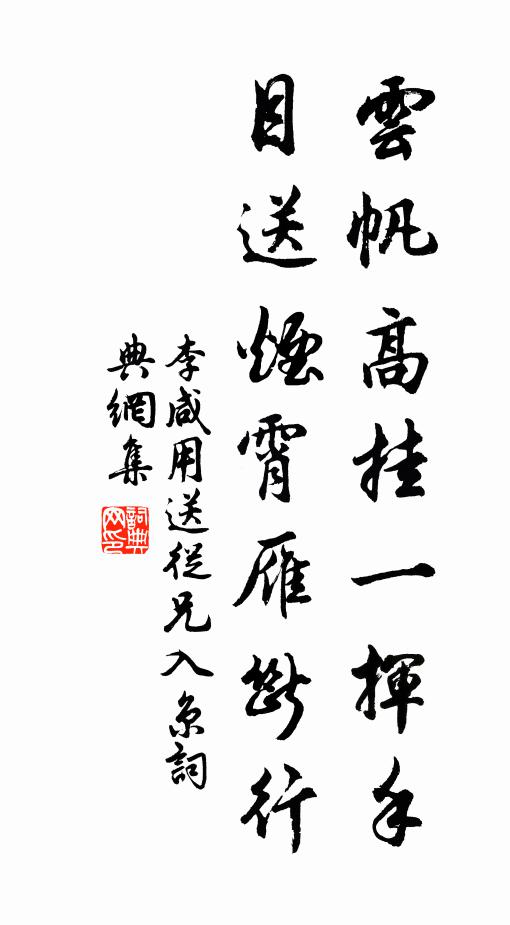 雲帆高挂一揮手
目送煙霄雁斷行
李咸用送從兄入京詞
典網集
詞典网印